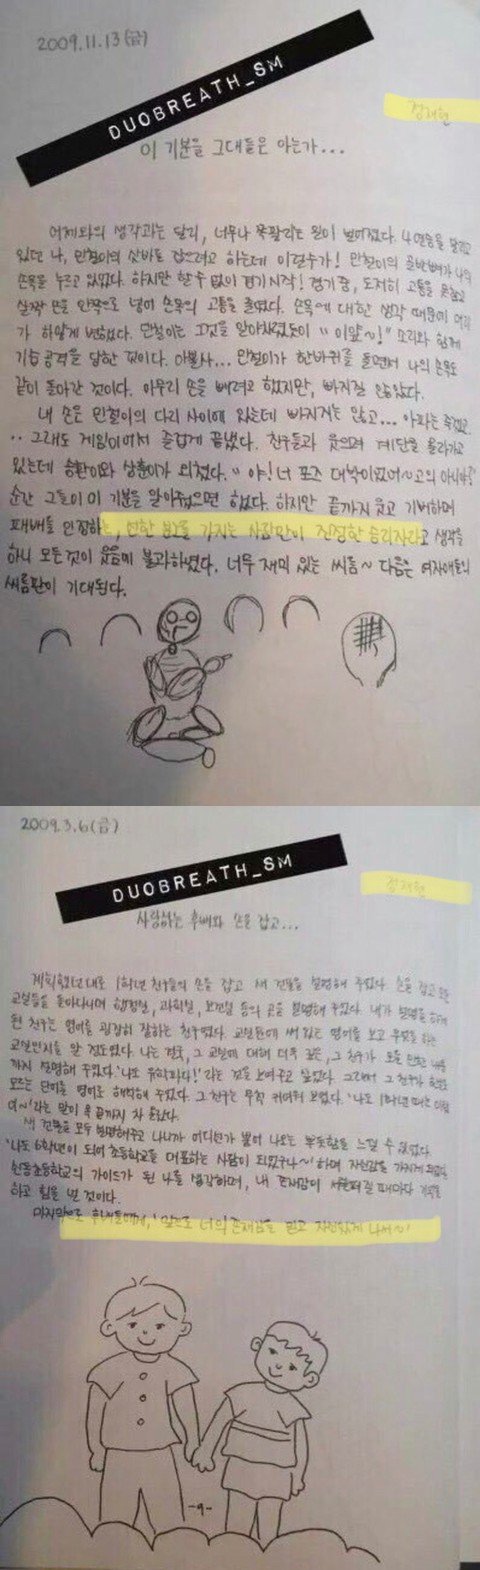 2009.11.13(금)
DUOBREATH_SM
정재현
이 기분을 그대들은 아는가...
어제와의 생각과는 달리, 너무나 똑팔리는 일이 벌어졌다. 4연승을 달리고
있던 나, 민철이의 샅바를 잡으려고 하는데 이럴수가! 민철이의 골반뼈가 나의
손목을 누르고 있었다. 하지만 할 수 없이 경기시작! 경기 중, 도저히 고통을 못참고
살짝 손을 안쪽으로 넣어 손목의 고통을 줄였다. 손목에 대한 생각 때문에 머리
가 하얗게 변했다. 민철이는 그것을 알아차렸듯이 "이얍~!" 소리와 함께
기습공격을 당한 것이다. 아뿔사... 민철이가 한바퀴를 돌면서 나의 손목도
같이 돌아간 것이다. 아무리 손을 빼려고 했지만, 빠지질 않았다.
내 손은 민철이의 다리 사이에 있는데 빠지지는 않고... 아파는 죽겠고
.. 그래도 게임이어서 즐겁게 끝냈다. 친구들과 웃으며 계단을 올라가고
있는데 승환이와 상훈이가 외쳤다. "야! 너 포즈 대박이었어~
순간 그들이 이 기분을 알아줬으면 했다. 하지만 끝까지 웃고 기뻐하며
패배를 인정하는, 또한 분노를 가지는 사람만이 진정한 승리자라고 생각을
하니 모든것이 웃음에 불과하였다. 너무 재미 있는 씨름~ 다음은 여자애들의
씨름판이 기대된다.
2009.3.6(금)
DUOBREATH_SM
정재현
사랑하는 후배와 손을 잡고...
계획했던 대로 1학년 친구들의 손을 잡고 새 건물을 설명해 주었다. 손을 잡고 모든
교실들을 돌아다니며 행정실, 과학실, 보건실 등의 곳을 설명해 주었다. 내가 설명을 하게
된 친구는 영어를 굉장히 잘하는 친구였다. 교실문에 써 있는 영어를 보고 무엇을 하는
교실인지를 알 정도였다. 나는 더욱, 그 교실에 대해 더욱 깊은, 그 친구가 모를 만한 내용
까지 설명해 주었다. '나도 유학파다!' 라는 것을 보여주고 싶었다. 그래서 그 친구가
모르는 단어를 영어로 해석해 주었다. 그 친구는 무척 귀여워 보였다. '나도 1학년 때는 이랬
어~' 라는 말이 목 끝까지 차 올랐다.
새 건물을 모두 설명해주고 나니까 어디선가 뿜어 나오는 뿌듯함을 느낄 수 있었다.
'나도 6학년이 되어 초등학교를 대표하는 사람이 되었구나~' 하며 자신감을 가지게 되었다.
초등학교의 가이드가 된 나를 생각하며, 내 존재감이 사라져갈 때마다 기억을
하고 힘을 낼 것이다.
마지막으로 후배들에게, '앞으로 너의 존재감을 믿고 자신있게 나서~!'
-9-